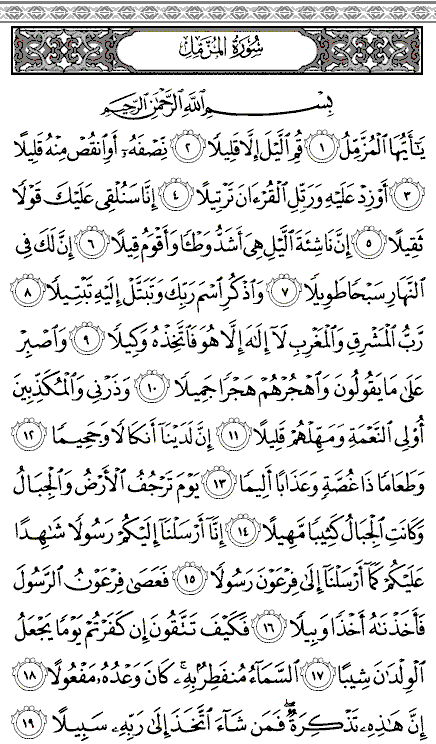 سُورَةُ الْمُزَّمِّلِ
بِسْمِ اللَّهِ الرَّحْمَٰنِ الرَّحِيمِ
يَـٰٓأَيُّهَا ٱلْمُزَّمِّلُ ١ قُمِ ٱلَّيْلَ إِلَّا قَلِيلًا ٢ نِّصْفَهُۥٓ أَوِ ٱنقُصْ مِنْهُ قَلِيلًا
٣ أَوْ زِدْ عَلَيْهِ وَرَتِّلِ ٱلْقُرْءَانَ تَرْتِيلًا ٤ إِنَّا سَنُلْقِى عَلَيْكَ قَوْلًا
ثَقِيلًا ٥ إِنَّ نَاشِئَةَ ٱلَّيْلِ هِىَ أَشَدُّ وَطْـًٔا وَأَقْوَمُ قِيلًا ٦ إِنَّ لَكَ فِى
ٱلنَّهَارِ سَبْحًا طَوِيلًا ٧ وَٱذْكُرِ ٱسْمَ رَبِّكَ وَتَبَتَّلْ إِلَيْهِ تَبْتِيلًا ٨
رَّبُّ ٱلْمَشْرِقِ وَٱلْمَغْرِبِ لَآ إِلَـٰهَ إِلَّا هُوَ فَٱتَّخِذْهُ وَكِيلًا ٩ وَٱصْبِرْ
عَلَىٰ مَا يَقُولُونَ وَٱهْجُرْهُمْ هَجْرًا جَمِيلًا ١٠ وَذَرْنِى وَٱلْمُكَذِّبِينَ
أُو۟لِى ٱلنَّعْمَةِ وَمَهِّلْهُمْ قَلِيلًا ١١ إِنَّ لَدَيْنَآ أَنكَالًا وَجَحِيمًا ١٢
وَطَعَامًا ذَا غُصَّةٍ وَعَذَابًا أَلِيمًا ١٣ يَوْمَ تَرْجُفُ ٱلْأَرْضُ وَٱلْجِبَالُ
وَكَانَتِ ٱلْجِبَالُ كَثِيبًا مَّهِيلًا ١٤ إِنَّآ أَرْسَلْنَآ إِلَيْكُمْ رَسُولًا شَـٰهِدًا
عَلَيْكُمْ كَمَآ أَرْسَلْنَآ إِلَىٰ فِرْعَوْنَ رَسُولًا ١٥ فَعَصَىٰ فِرْعَوْنُ ٱلرَّسُولَ
فَأَخَذْنَـٰهُ أَخْذًا وَبِيلًا ١٦ فَكَيْفَ تَتَّقُونَ إِن كَفَرْتُمْ يَوْمًا يَجْعَلُ
ٱلْوِلْدَٰنَ شِيبًا ١٧ ٱلسَّمَآءُ مُنفَطِرٌۢ بِهِۦ ۚ كَانَ وَعْدُهُۥ مَفْعُولًا ١٨
إِنَّ هَـٰذِهِۦ تَذْكِرَةٌ ۖ فَمَن شَآءَ ٱتَّخَذَ إِلَىٰ رَبِّهِۦ سَبِيلًا ١٩